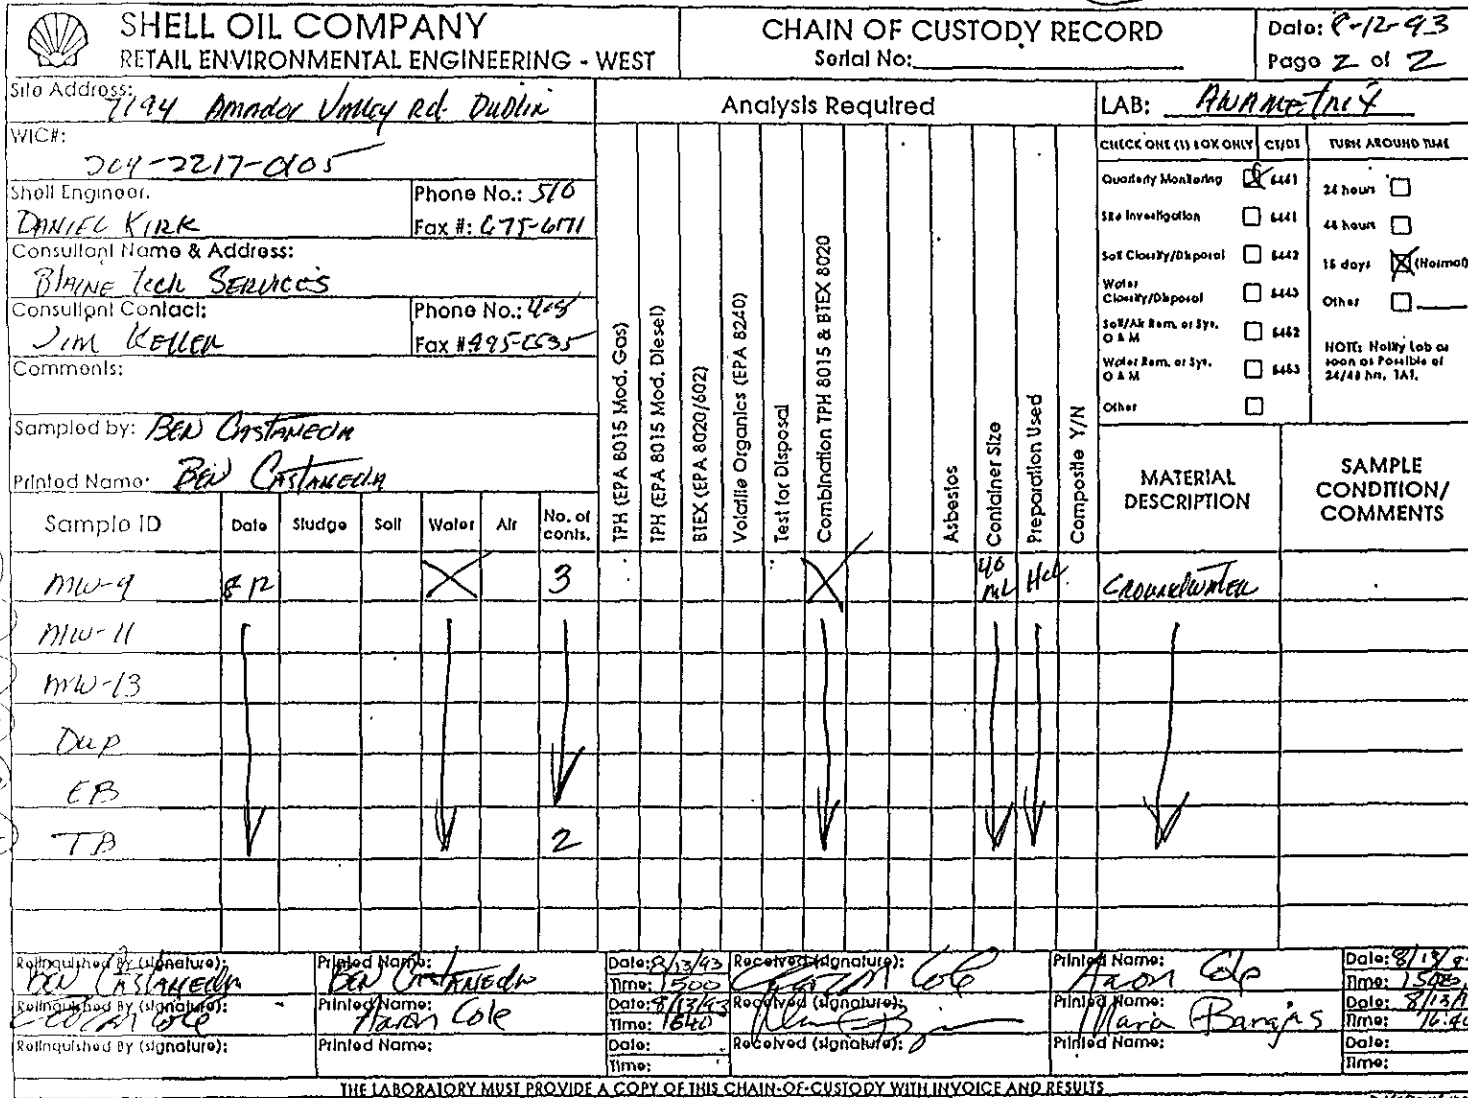 SHELL OIL COMPANY
RETAIL ENVIRONMENTAL ENGINEERING - WEST
CHAIN OF CUSTODY RECORD
Serial No:
Date: 8-12-93
Page 2 of 2
Site Address: 7194 Amador Valley Rd. Dublin
WIC#:
204-2217-0105
Shell Engineer:
DANIEL KIRK
Phone No.: 510
Fax #: 675-6171
Consultant Name & Address:
BLAINE Tech SERVICES
Consultant Contact:
JIM KELLER
Phone No.: 408
Fax # 995-5535
Comments:
Sampled by: BEN CASTANEDA
Printed Name: BEN CASTANEDA
Analysis Required
LAB: ANAMETRIX
CHECK ONE (1) BOX ONLY CT/DT TURN AROUND TIME
Quarterly Monitoring 6461
Site Investigation 6441
Soil Classify/Disposal 6442
Water Classify/Disposal 6443
Soil/Air Rem. or Sys. O & M 6452
Water Rem. or Sys. O & M 6453
Other
24 hours
48 hours
15 days (Normal)
Other
NOTE: Notify Lab as soon as Possible of 24/48 hrs. TAT.
Sample ID Date Sludge Soil Water Air No. of conts.
TPH (EPA 8015 Mod. Gas)
TPH (EPA 8015 Mod. Diesel)
BTEX (EPA 8020/602)
Volatile Organics (EPA 8240)
Test for Disposal
Combination TPH 8015 & BTEX 8020
Asbestos
Container Size
Preparation Used
Composite Y/N
MATERIAL DESCRIPTION
SAMPLE CONDITION/ COMMENTS
MW-9 8-12 X 3 X 40 ml HCL GROUNDWATER
MW-11
MW-13
Dup
EB
TB 2
Relinquished By (signature): BEN CASTANEDA
Printed Name: BEN CASTANEDA
Date: 8/13/93
Time: 1500
Received (signature): Aaron Cole
Printed Name: Aaron Cole
Date: 8/13/9
Time: 1500
Relinquished By (signature): Aaron Cole
Printed Name: Aaron Cole
Date: 8/13/93
Time: 1640
Received (signature):
Printed Name: Maria Barajas
Date: 8/13/9
Time: 16:40
Relinquished By (signature):
Printed Name:
Date:
Time:
Received (signature):
Printed Name:
Date:
Time:
THE LABORATORY MUST PROVIDE A COPY OF THIS CHAIN-OF-CUSTODY WITH INVOICE AND RESULTS